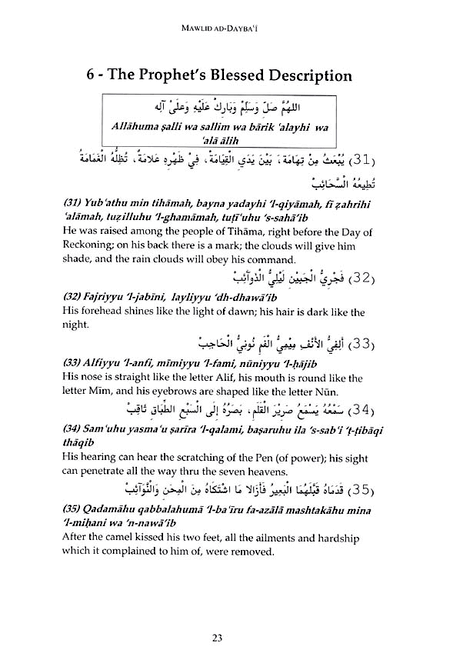 MAWLID AD-DAYBA'Í
6 - The Prophet's Blessed Description
اللهُمَّ صَلِّ وَسَلِّمْ وَبَارِكْ عَلَيْهِ وَعَلَىٰ آلِهِ
Allāhuma ṣalli wa sallim wa bārik 'alayhi wa
'alā ālih
(31) يُبْعَثُ مِنْ تِهَامَةَ، بَيْنَ يَدَيِ الْقِيَامَةِ، فِي ظَهْرِهِ عَلَامَةٌ، تُظِلُّهُ الْغَمَامَةُ
تُطِيعُهُ السَّحَائِبُ
(31) Yub'athu min tihāmah, bayna yadayhi 'l-qiyāmah, fī ẓahrihi
'alāmah, tuẓilluhu 'l-ghamāmah, tuṭī'uhu 's-sahā'ib
He was raised among the people of Tihāma, right before the Day of
Reckoning; on his back there is a mark; the clouds will give him
shade, and the rain clouds will obey his command.
(32) فَجْرِيُّ الْجَبِيْنِ لَيْلِيُّ الْذَوآئِبْ
(32) Fajriyyu 'l-jabīni, layliyyu 'dh-dhawā'ib
His forehead shines like the light of dawn; his hair is dark like the
night.
(33) أَلِفِيُّ الأَنْفِ مِيْمِيُّ الْفَمِ نُونِيُّ الْحَاجِبْ
(33) Alfiyyu 'l-anfi, mīmiyyu 'l-fami, nūniyyu 'l-ḥājib
His nose is straight like the letter Alif, his mouth is round like the
letter Mīm, and his eyebrows are shaped like the letter Nūn.
(34) سَمْعُهُ يَسْمَعُ صَرِيْرَ الْقَلَمِ، بَصَرُهُ إِلَى السَّبْعِ الطِّبَاقِ ثَاقِبْ
(34) Sam'uhu yasma'u ṣarīra 'l-qalami, baṣaruhu ila 's-sab'i 'ṭ-ṭibāqi
thāqib
His hearing can hear the scratching of the Pen (of power); his sight
can penetrate all the way thru the seven heavens.
(35) قَدَمَاهُ قَبَّلَهُمَا الْبَعِيرُ فَأَزَالَا مَا اشْتَكَاهُ مِنَ الْمِحَنِ وَالنَّوَآئِبْ
(35) Qadamāhu qabbalahumā 'l-ba'īru fa-azālā mashtakāhu mina
'l-miḥani wa 'n-nawā'ib
After the camel kissed his two feet, all the ailments and hardship
which it complained to him of, were removed.
23